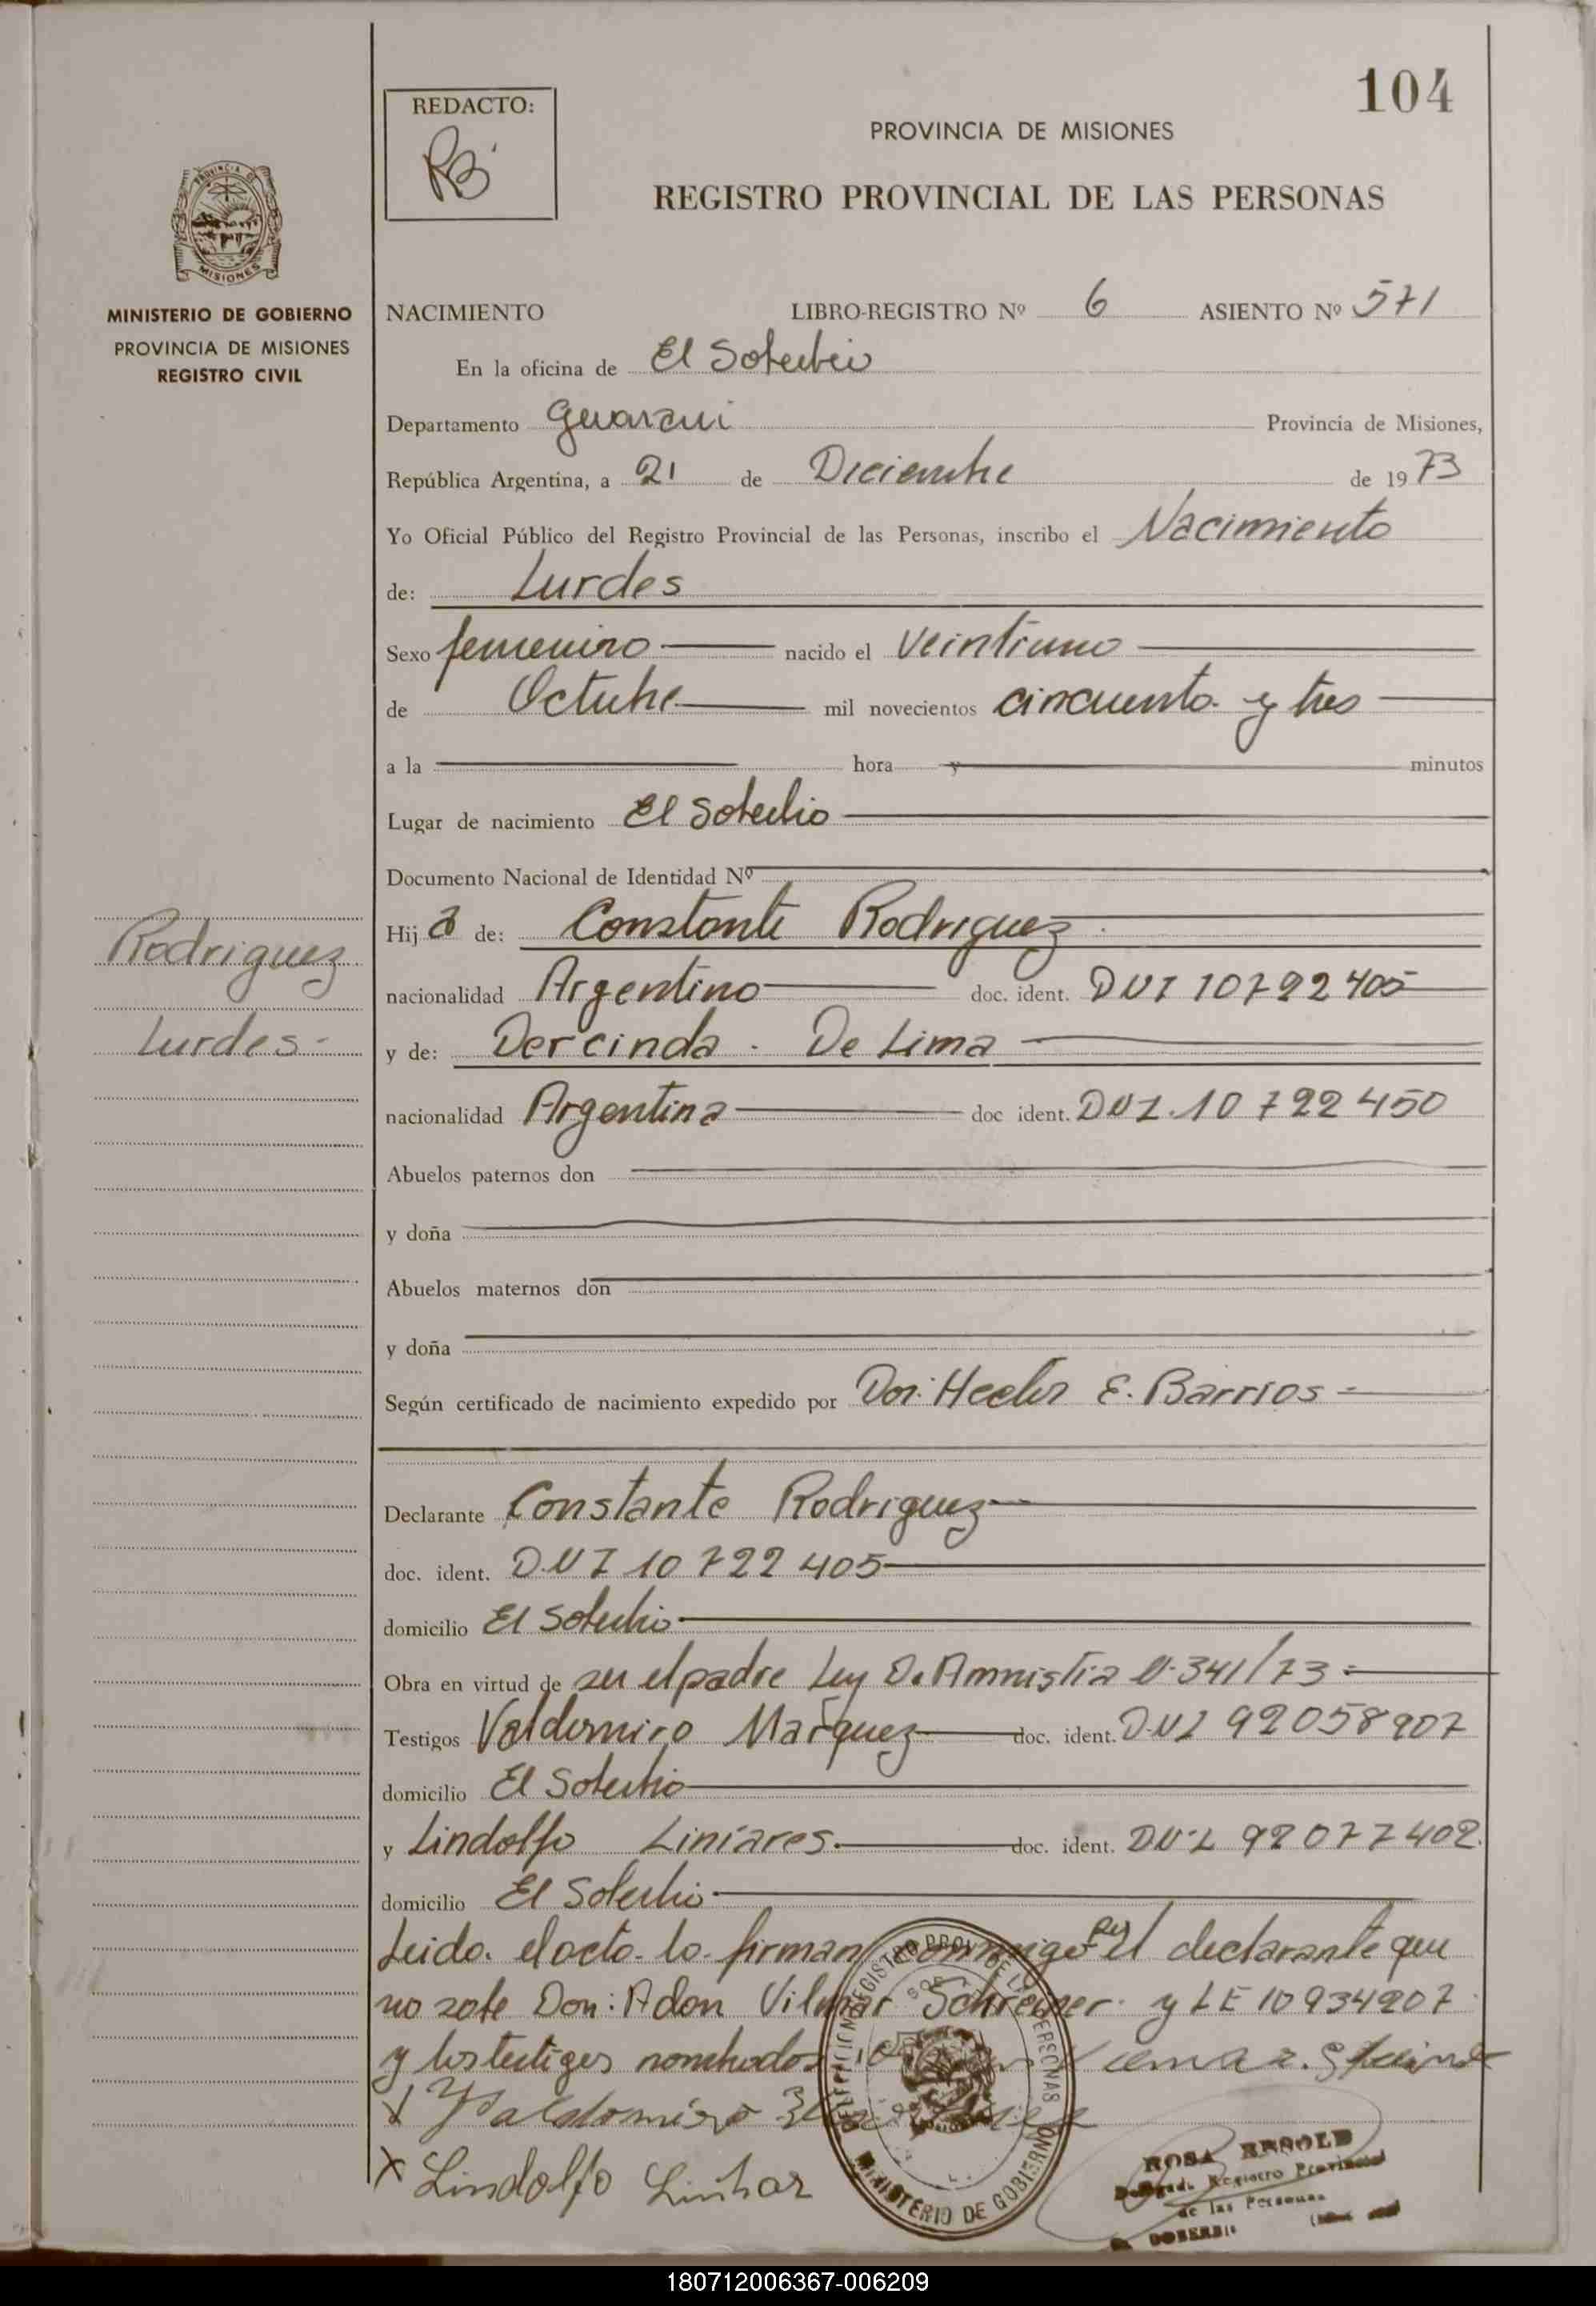 104
REDACTO:
RB
PROVINCIA DE MISIONES
REGISTRO PROVINCIAL DE LAS PERSONAS
PROVINCIA DE
MISIONES
MINISTERIO DE GOBIERNO
PROVINCIA DE MISIONES
REGISTRO CIVIL
NACIMIENTO LIBRO-REGISTRO Nº 6 ASIENTO Nº 571
En la oficina de El Soberbio
Departamento Guarani Provincia de Misiones,
República Argentina, a 21 de Diciembre de 1973
Yo Oficial Público del Registro Provincial de las Personas, inscribo el Nacimiento
de: Lurdes
Sexo femenino nacido el Veintiuno
de Octubre mil novecientos cincuenta y tres
a la hora y minutos
Lugar de nacimiento El Soberbio
Documento Nacional de Identidad Nº
Rodriguez
Lurdes-
Hija de: Constante Rodriguez
nacionalidad Argentino doc. ident. DNI 10722405
y de: Dercinda De Lima
nacionalidad Argentina doc ident. DNI 10722450
Abuelos paternos don
y doña
Abuelos maternos don
y doña
Según certificado de nacimiento expedido por Don: Hector E. Barrios -
Declarante Constante Rodriguez
doc. ident. D.N I 10 722 405
domicilio El Soberbio
Obra en virtud de ser el padre Ley De Amnistia N-341/73
Testigos Valdomiro Marquez doc. ident. D.N I 92058907
domicilio El Soberbio
y Lindolfo Liniares. doc. ident. D.N.I 92077402.
domicilio El Soberbio
Leido el acto lo firman conmigo por el declarante que
no sabe Don: Adon Vilmar Schreiner y LE 10934207
y los testigos nombrados
x Valdomiro
x Lindolfo Linhar
MINISTERIO DE GOBIERNO
ROSA
Registro Provincial
de las Personas